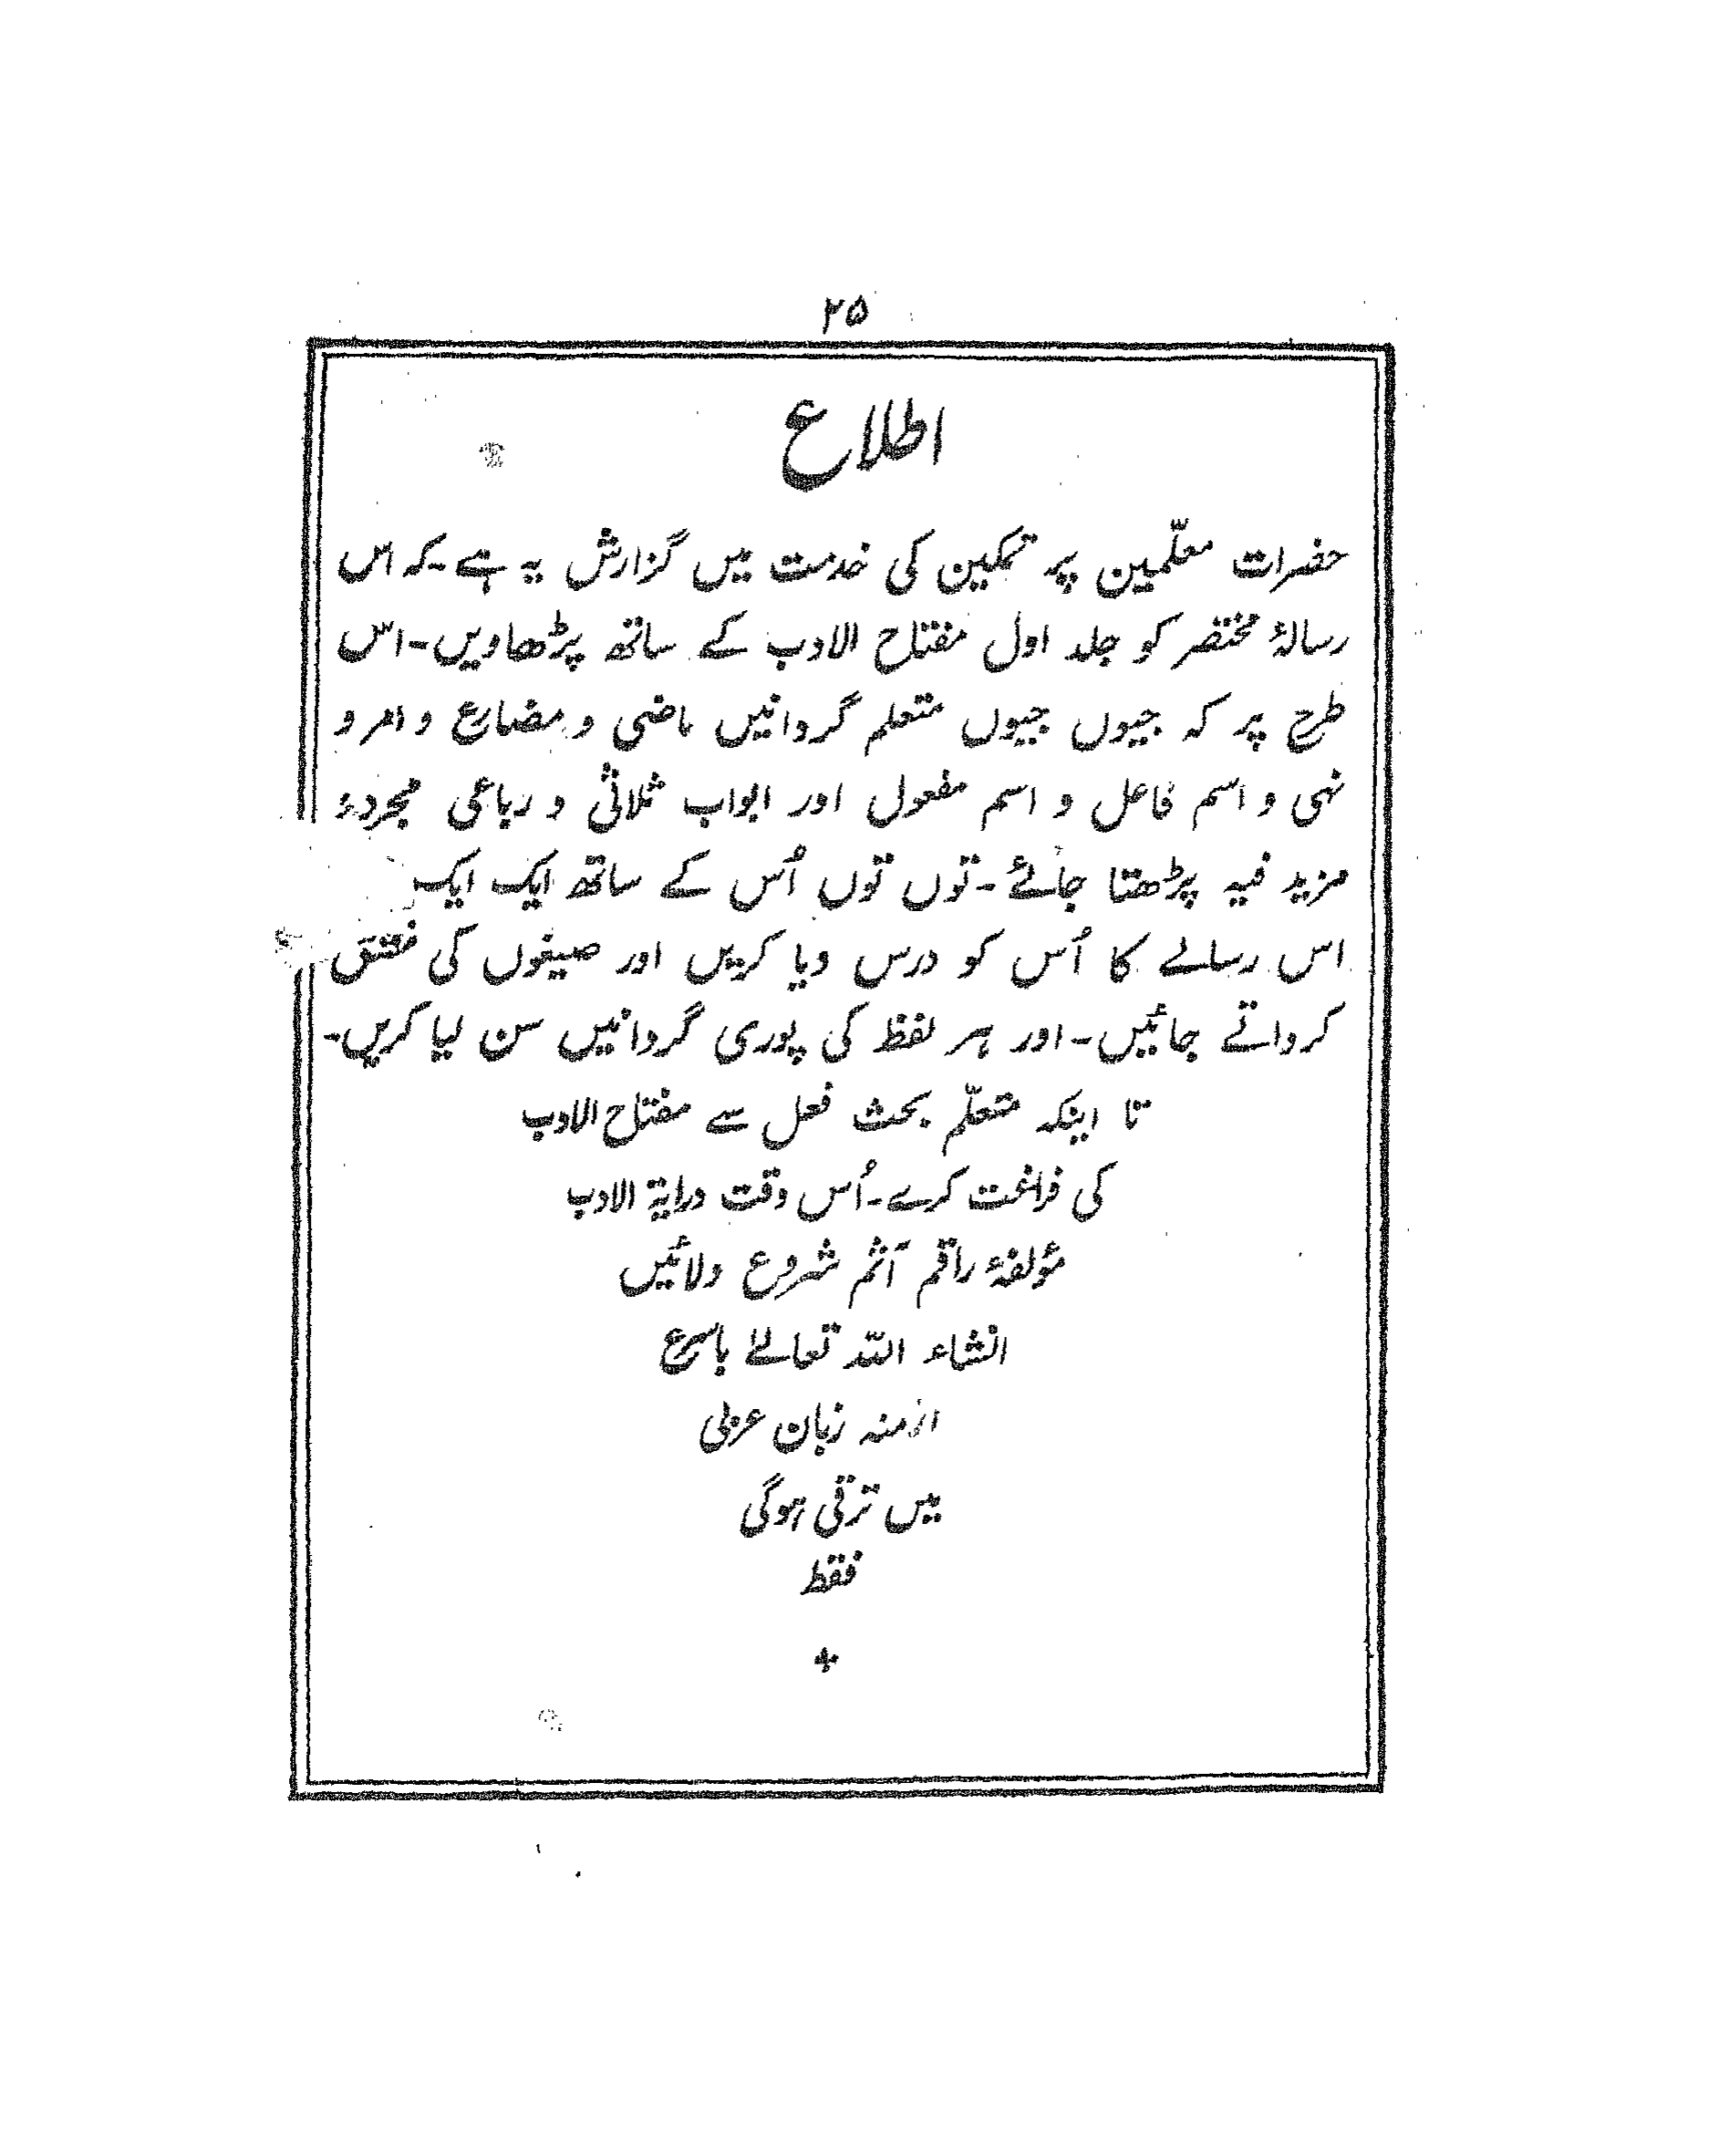 ۲۵
اطلاع
حضرات معلّمین پر تمکین کی خدمت میں گزارش یہ ہے۔کہ اس
رسالۂ مختصر کو جلد اول مفتاح الادب کے ساتھ پڑھاویں۔اس
طرح پر کہ جیوں جیوں متعلم گردانیں ماضی و مضارع و امر و
نہی و اسم فاعل و اسم مفعول اور ابواب ثلاثی و رباعی مجردۂ
مزید فیہ پڑھتا جائے۔توں توں اُس کے ساتھ ایک ایک
اس رسالے کا اُس کو درس دیا کریں اور صیغوں کی مشق
کرواتے جائیں۔اور ہر لفظ کی پوری گردانیں سن لیا کریں۔
تا اینکہ متعلّم بحث فعل سے مفتاح الادب
کی فراغت کرے۔اُس وقت درایۃ الادب
مؤلفۂ راقم آثم شروع دلائیں
انشاء اللہ تعالےٰ باسرع
ازمنہ زبان عربی
میں ترقی ہوگی
فقط